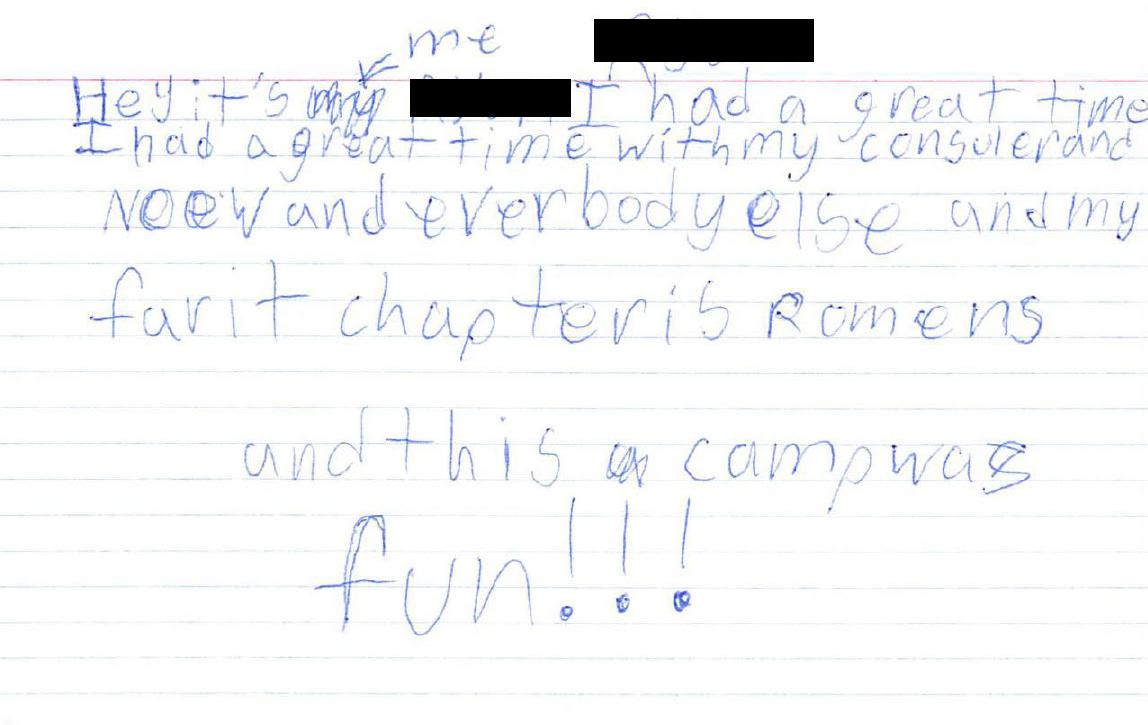 me
Hey it's I had a great time
I had a great time with my consuler and
Noew and everbody else and my
farit chapter is Romens
and this camp was
fun!!!